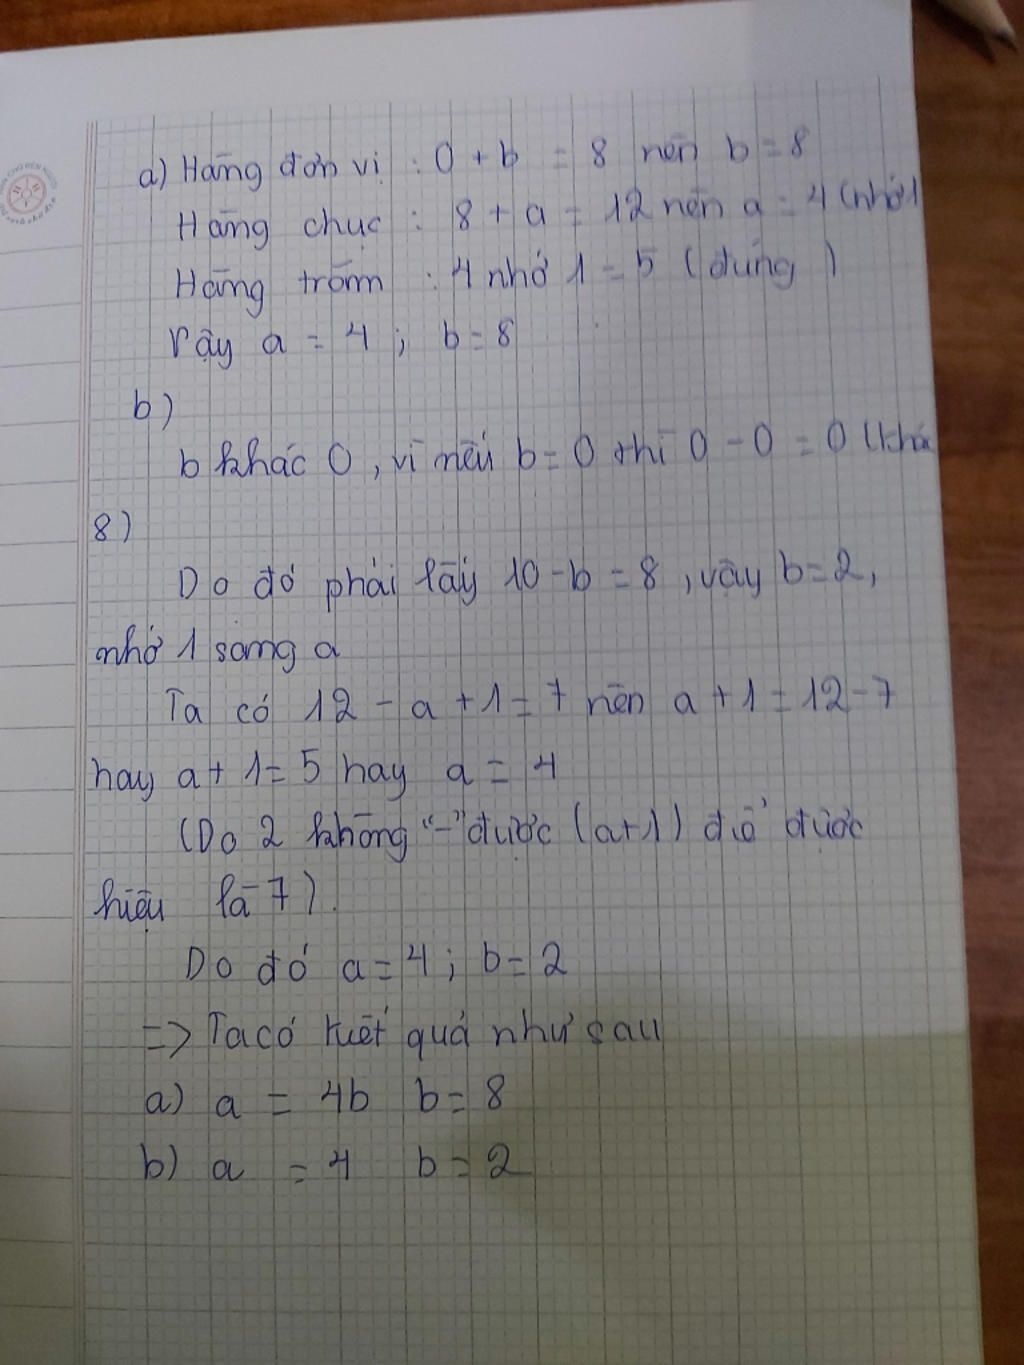 a) Hàng đơn vị : 0 + b = 8 nên b = 8
Hàng chục : 8 + a = 12 nên a = 4 (nhớ 1
Hàng trăm : 4 nhớ 1 = 5 (đúng )
Vậy a = 4 ; b = 8
b)
b khác 0 , vì nếu b = 0 thì 0 - 0 = 0 (khác
8)
Do đó phải lấy 10 - b = 8 , vậy b = 2,
nhớ 1 sang a
Ta có 12 - a + 1 = 7 nên a + 1 = 12 - 7
hay a + 1 = 5 hay a = 4
(Do 2 không "-" được (a+1) để được
hiệu là 7).
Do đó a = 4 ; b = 2
=> Ta có kết quả như sau
a) a = 4b b = 8
b) a = 4 b = 2